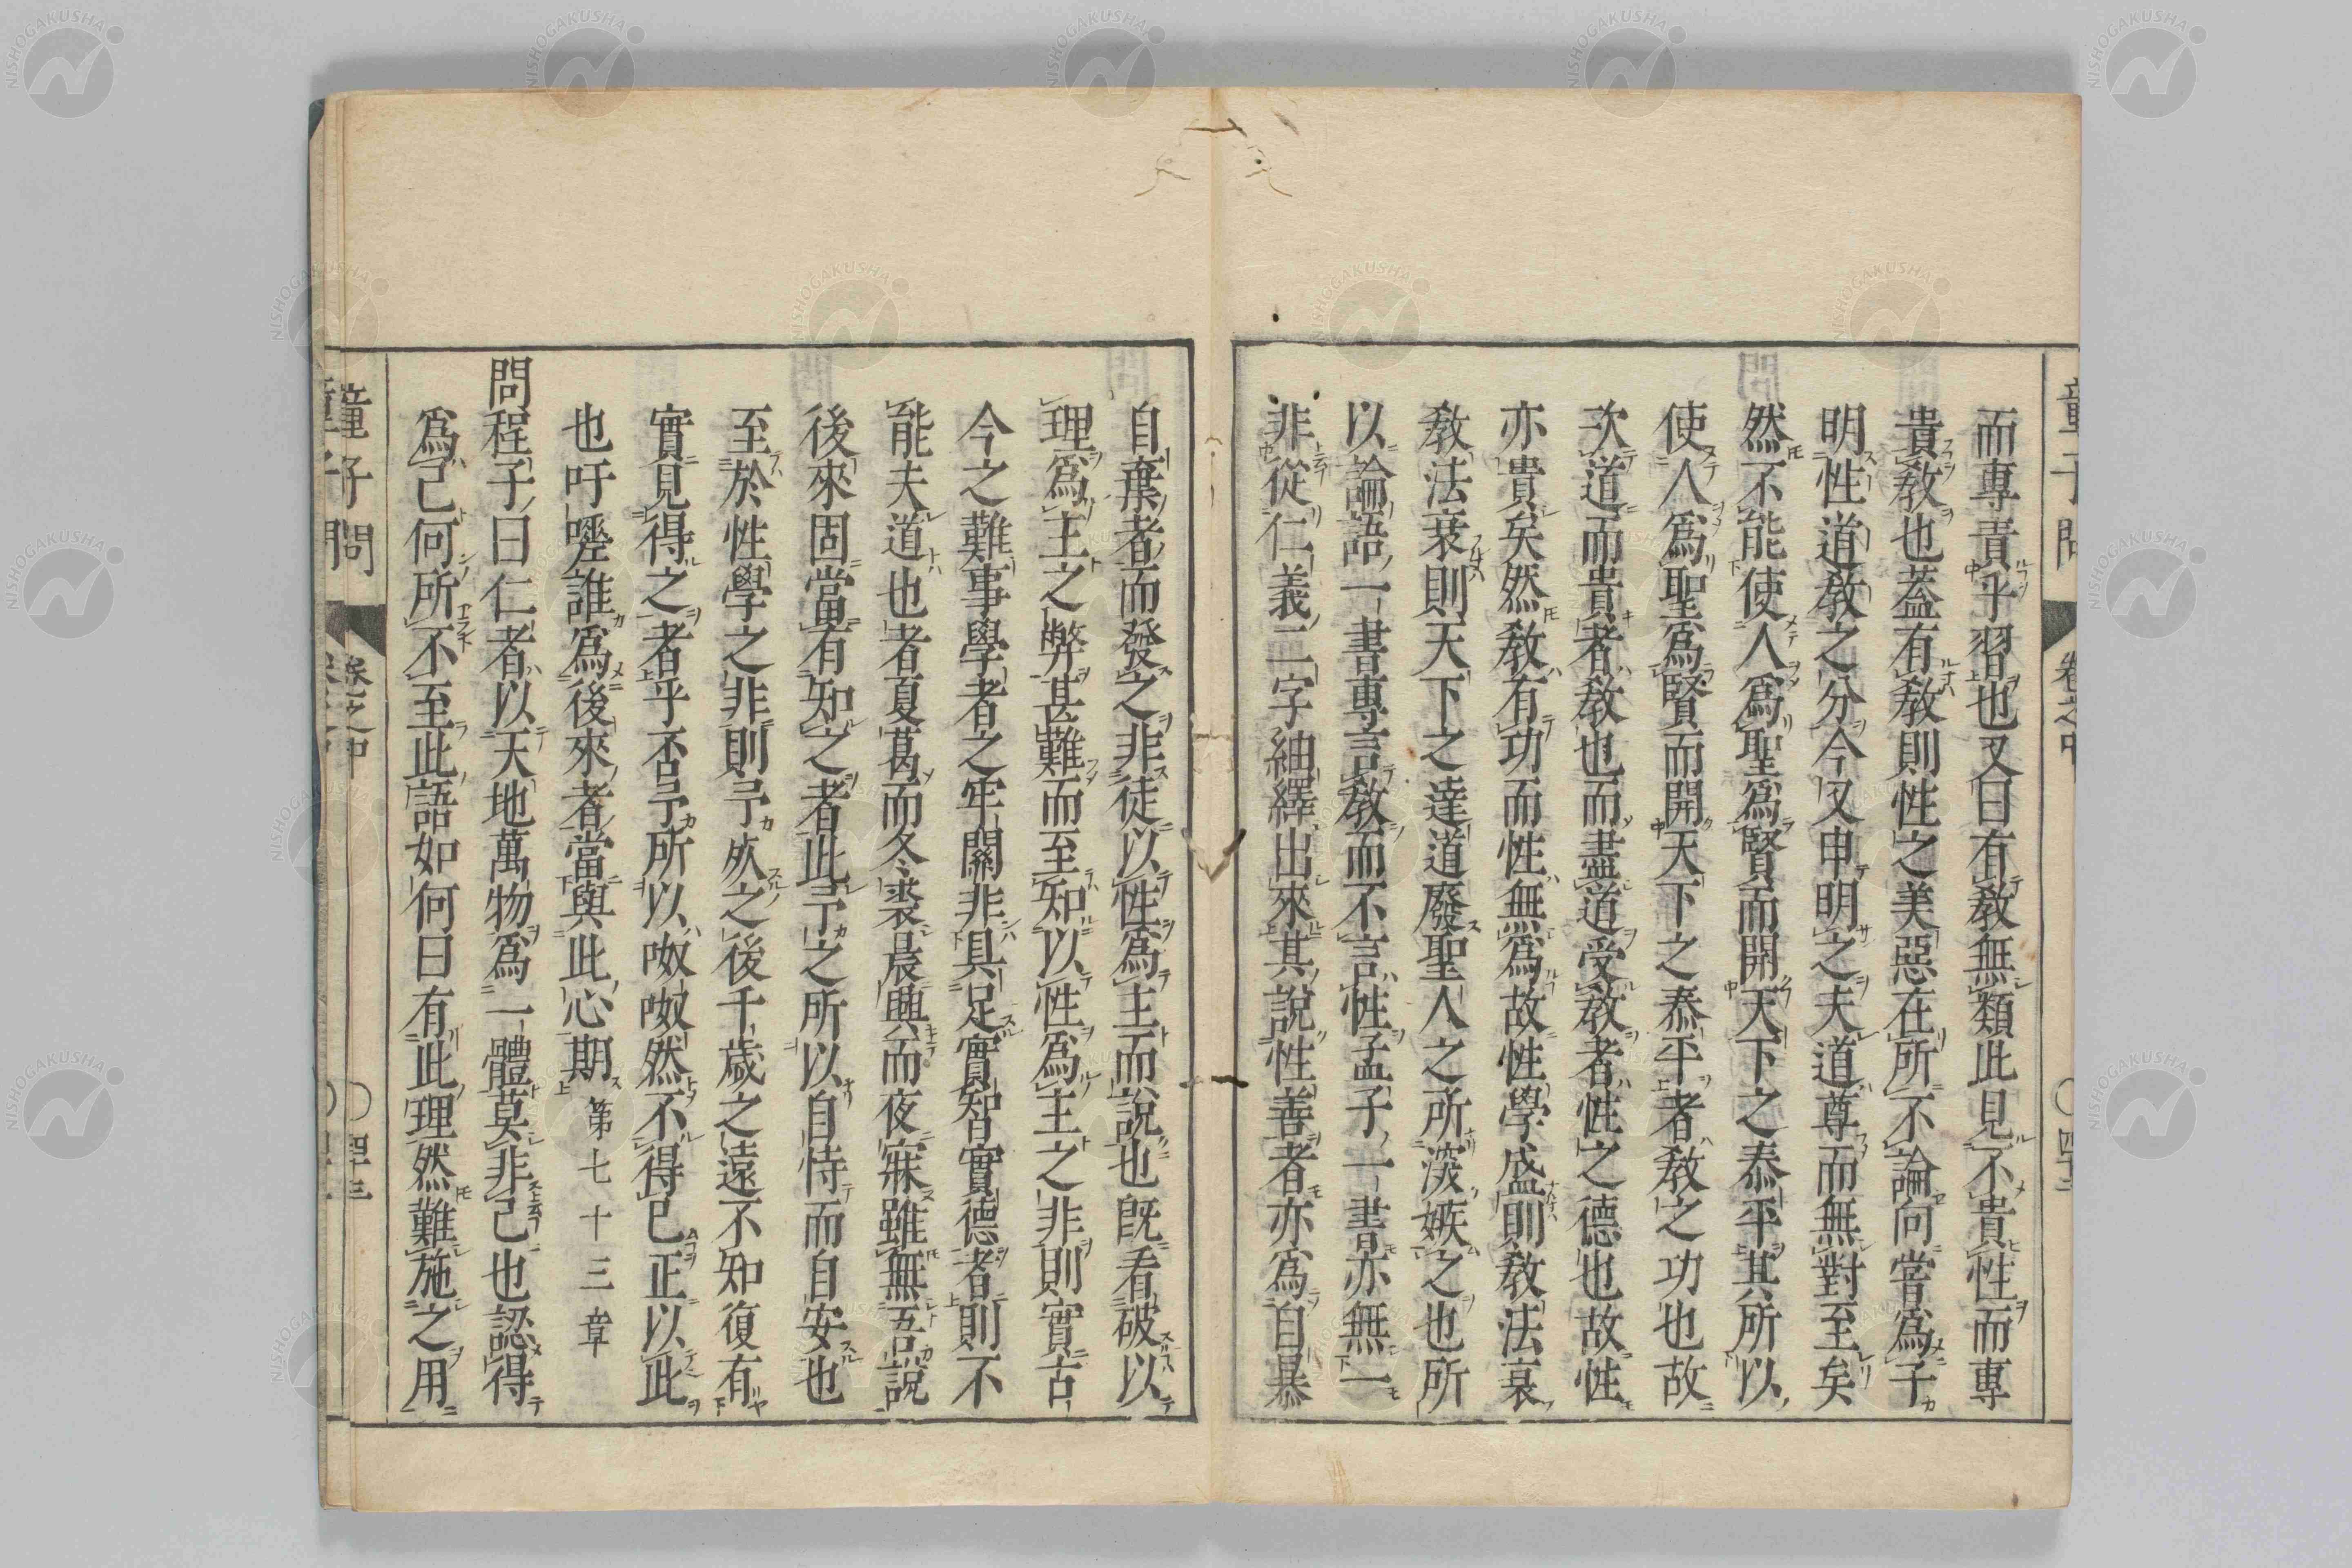 而專責乎習也又曰有教無類此見不貴性而專
貴教也蓋有教則性之美惡在所不論向嘗爲子
明性道教之分今又申明之夫道尊而無對至矣
然不能使人爲聖爲賢而開天下之泰平其所以
使人爲聖爲賢而開天下之泰平者教之功也故
次道而貴者教也而盡道受教者性之德也故性
亦貴矣然教有功而性無爲故性學盛則教法衰
教法衰則天下之達道廢聖人之所深嫉之也所
以論語一書專言教而不言性孟子一書亦無一
非從仁義二字紬繹出來其說性善者亦爲自暴
自棄者而發之非徒以性爲主而說也既看破以
理爲主之弊甚難而至知以性爲主之非則實古
今之難事學者之牢關非具足實智實德者則不
能夫道也者夏葛而冬裘晨興而夜寐雖無吾說
後來固當有知之者此予之所以自恃而自安也
至於性學之非則予歿之後千歲之遠不知復有
實見得之者乎否予所以呶呶然不得已正以此
也吁嚱誰爲後來者當與此心期 第七十三章
問程子曰仁者以天地萬物爲一體莫非己也認得
爲己何所不至此語如何曰有此理然難施之用
童子問 卷之中 四十二
童子問 卷之中 四十三
NISHOGAKUSHA